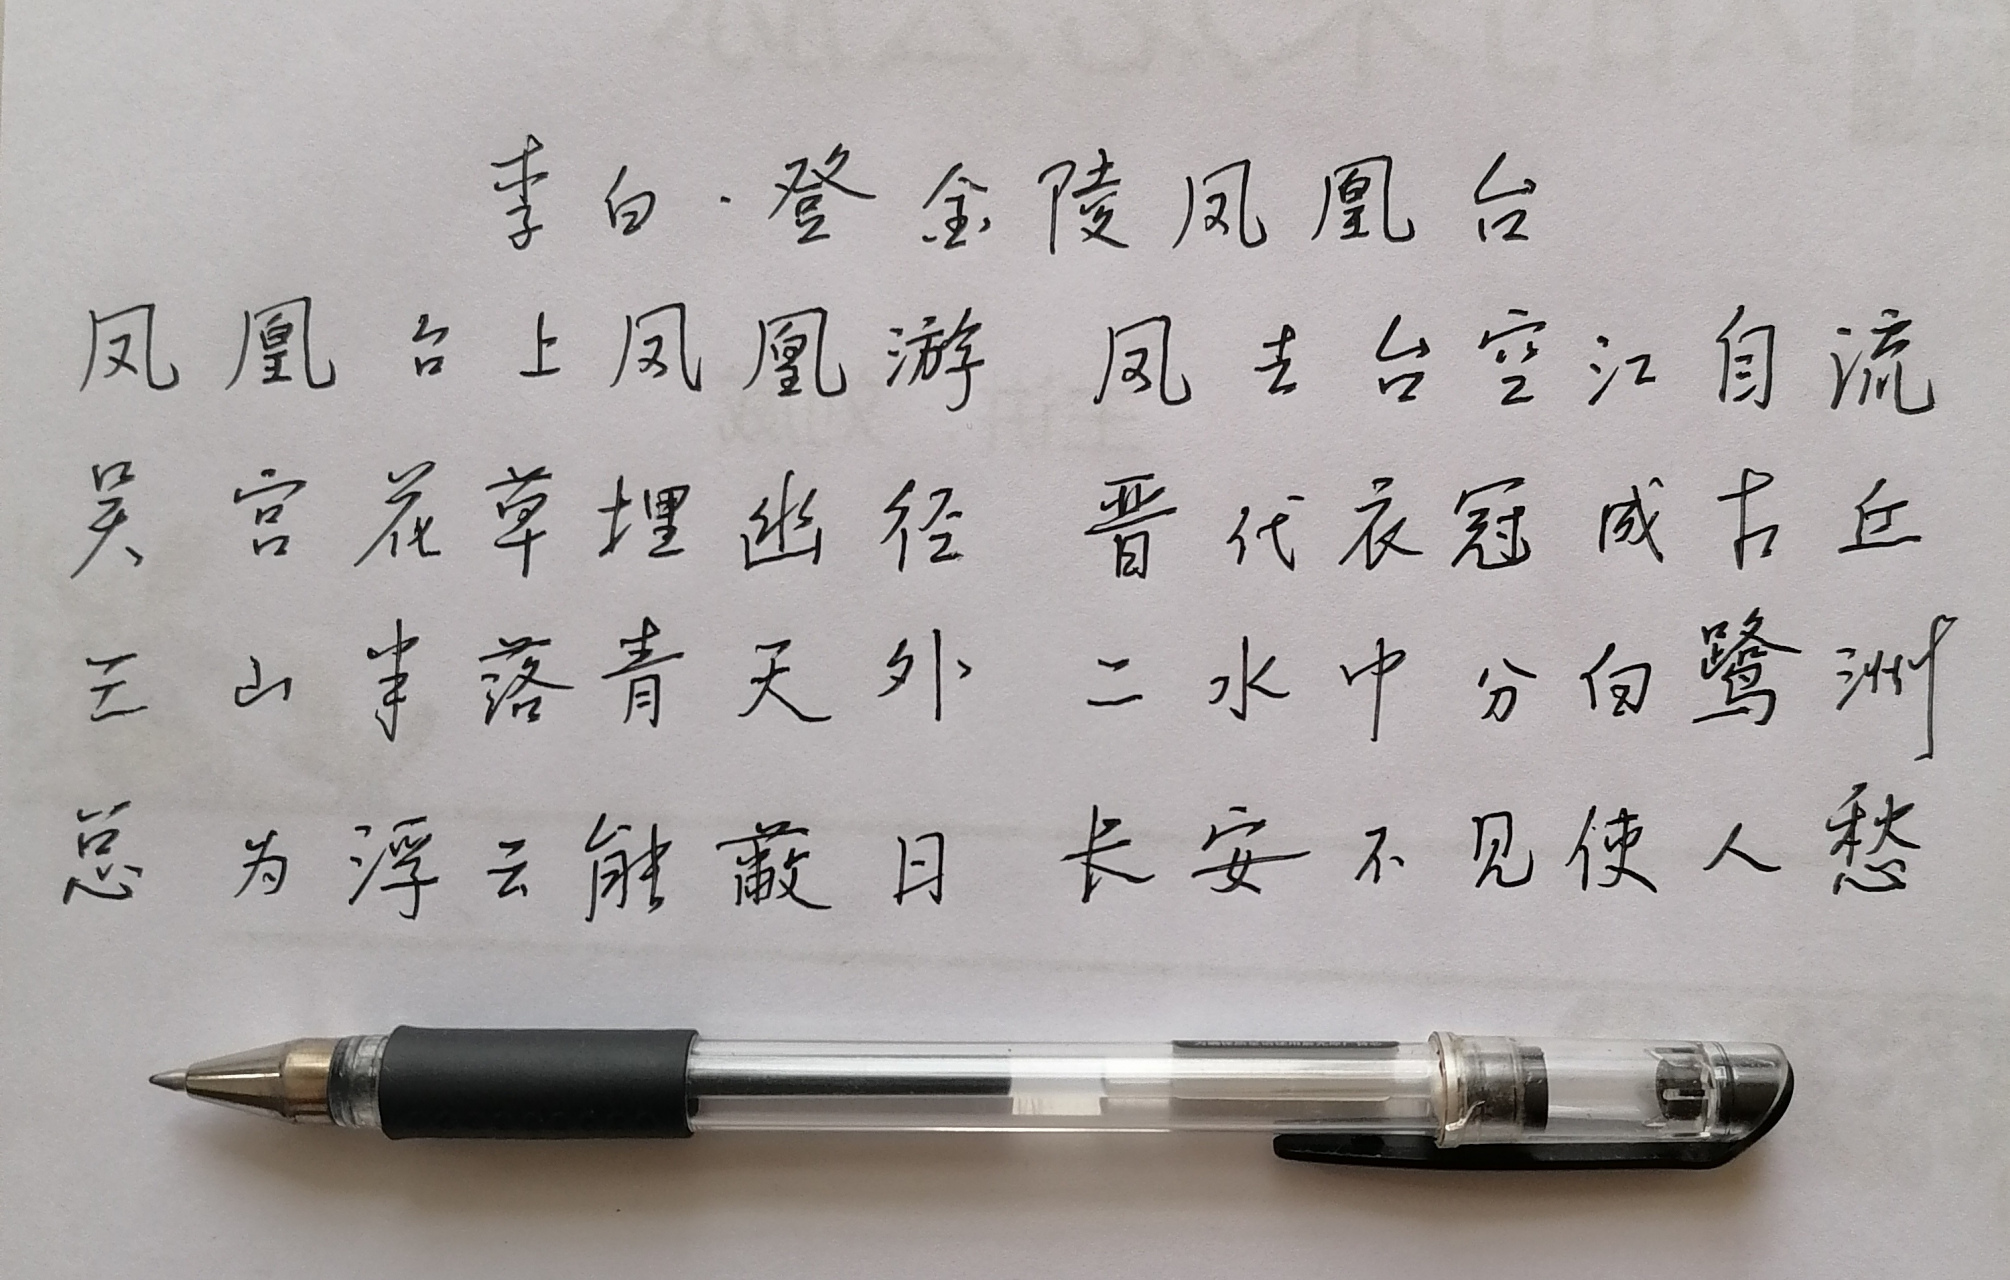 李白·登金陵凤凰台
凤凰台上凤凰游 凤去台空江自流
吴宫花草埋幽径 晋代衣冠成古丘
三山半落青天外 二水中分白鹭洲
总为浮云能蔽日 长安不见使人愁